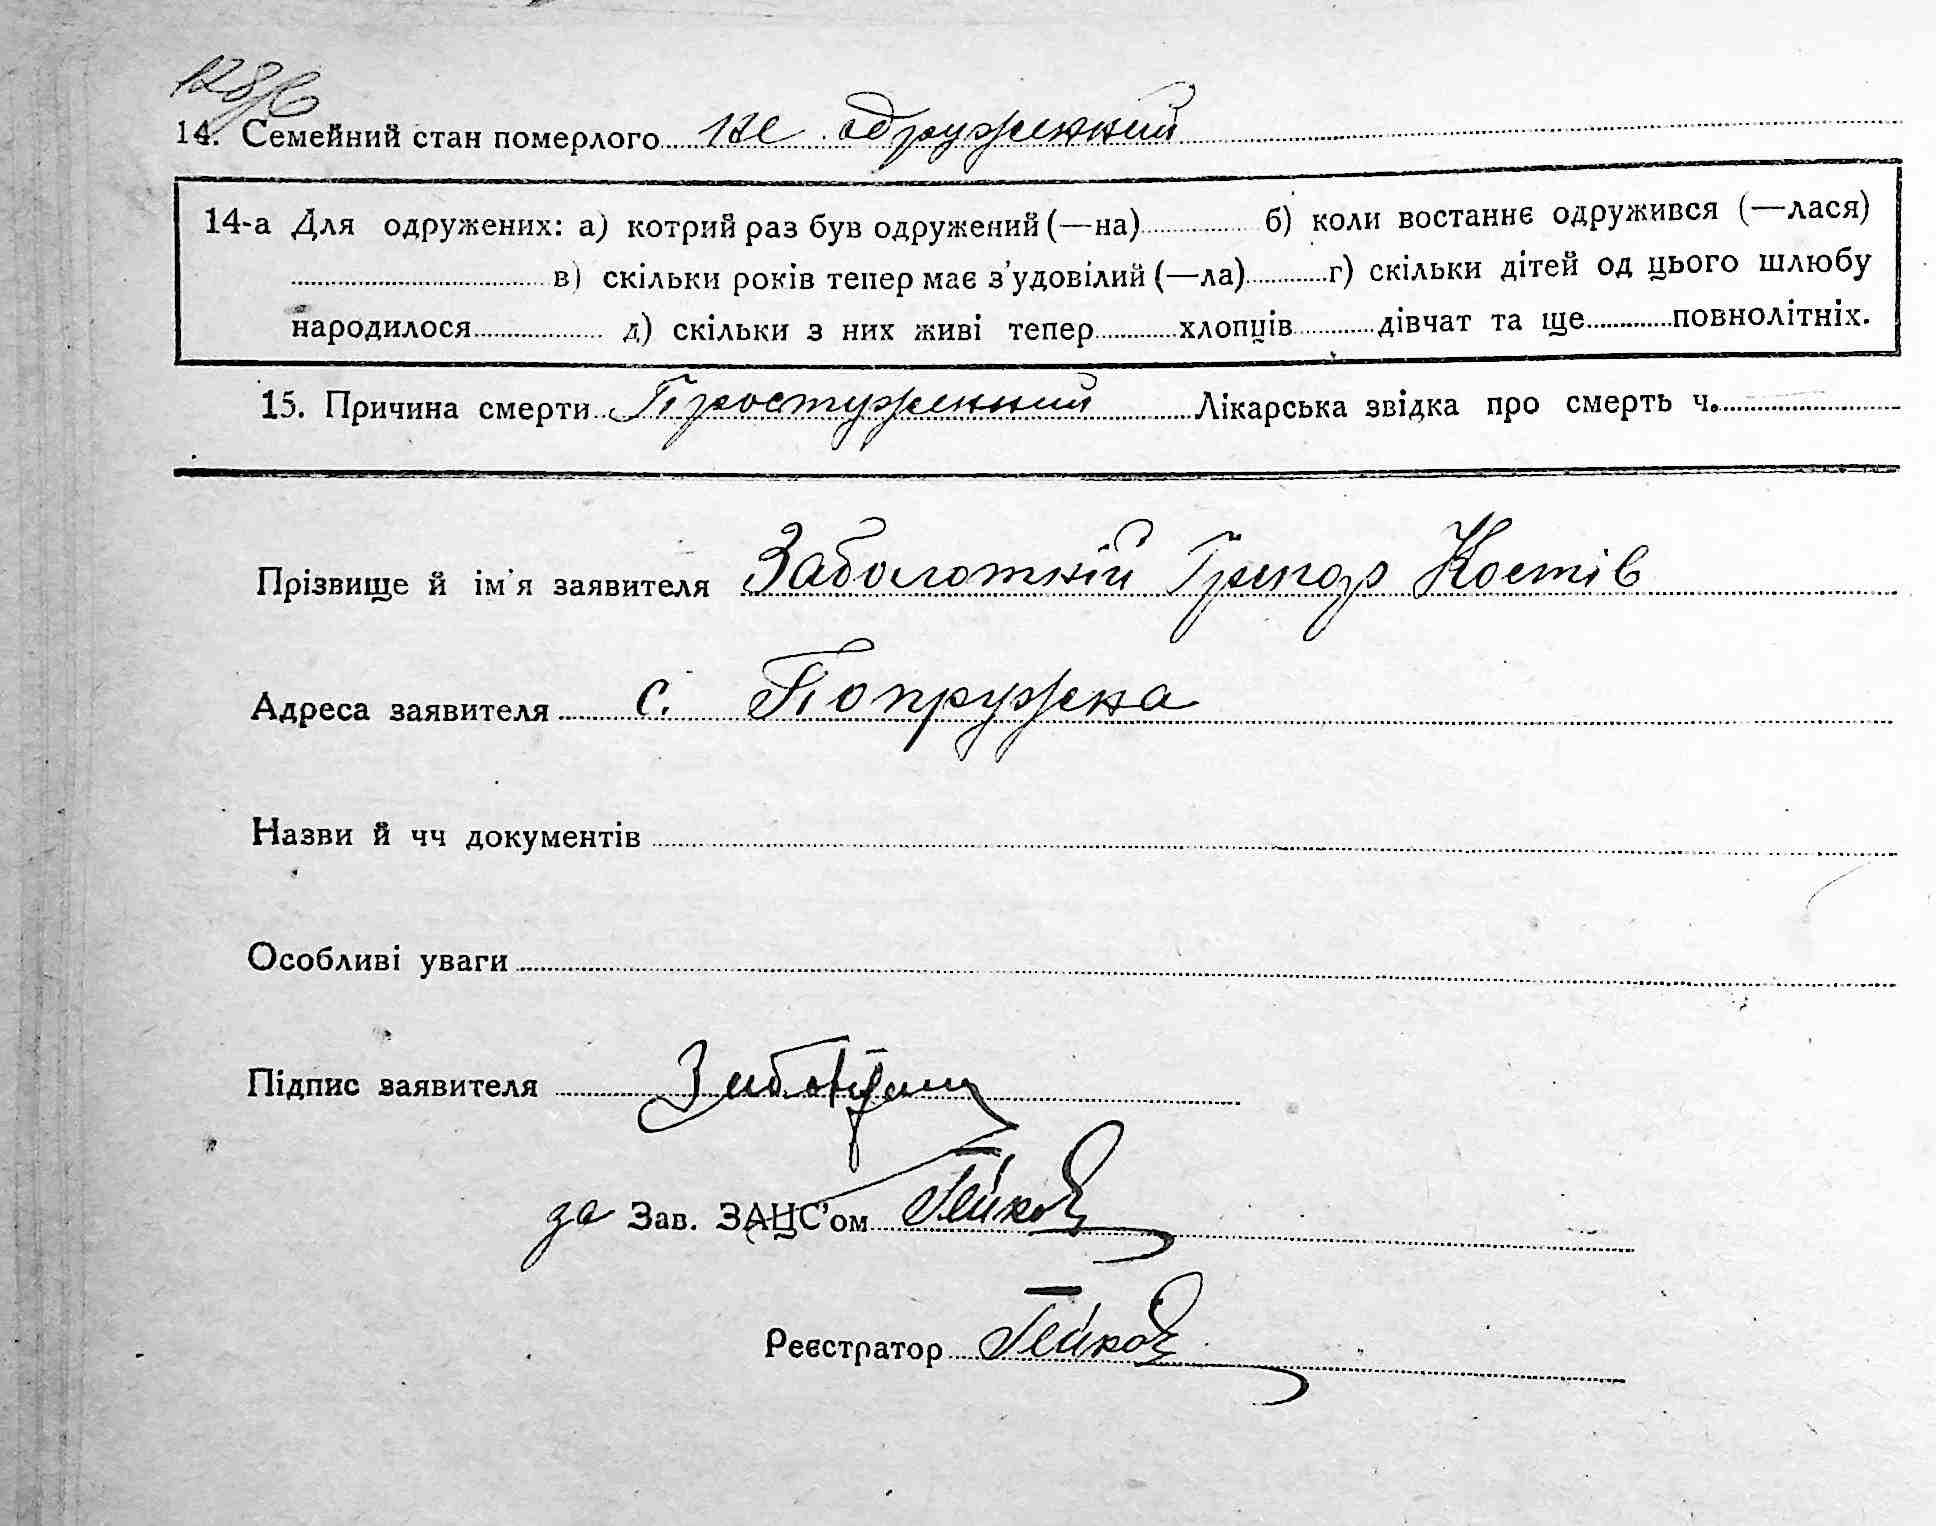 14. Семейний стан померлого не одружений
14-а Для одружених: а) котрий раз був одружений (—на) б) коли востаннє одружився (—лася)
в) скільки років тепер має з'удовілий (—ла) г) скільки дітей од цього шлюбу
народилося д) скільки з них живі тепер хлопців дівчат та ще повнолітніх.
15. Причина смерти Простужений Лікарська звідка про смерть ч.
Прізвище й ім'я заявителя Заболотній Григор Костів
Адреса заявителя с. Попружна
Назви й чч документів
Особливі уваги
Підпис заявителя
за Зав. ЗАЦС'ом
Реєстратор